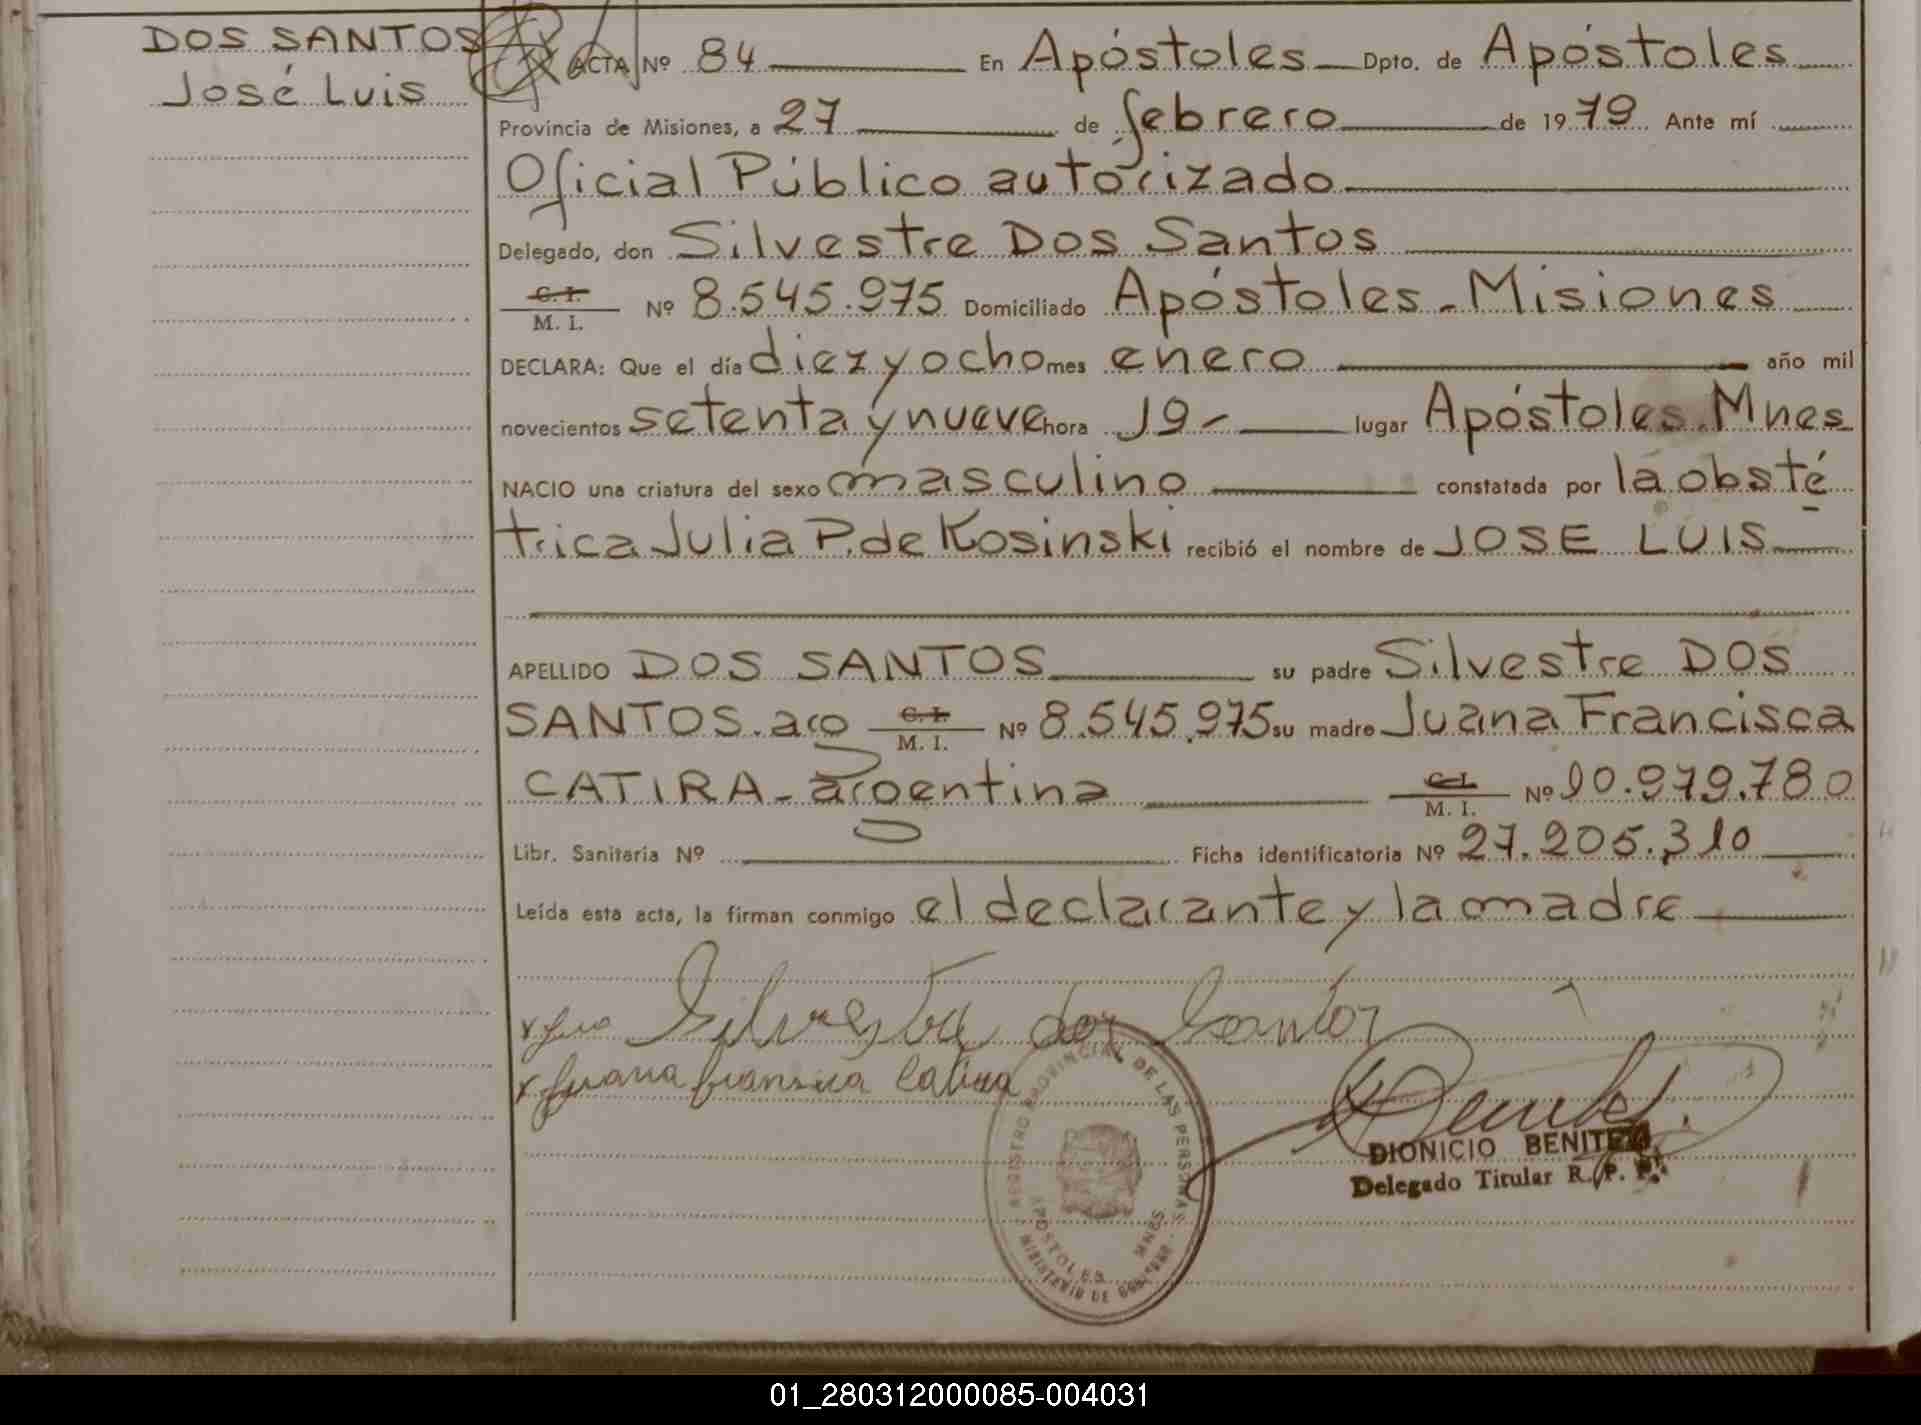 DOS SANTOS
José Luis
ACTA Nº 84 En Apóstoles Dpto. de Apóstoles
Provincia de Misiones, a 27 de febrero de 1979 Ante mí
Oficial Público autorizado
Delegado, don Silvestre Dos Santos
C. I.
M. I. Nº 8.545.975 Domiciliado Apóstoles - Misiones
DECLARA: Que el día diez y ocho mes enero año mil
novecientos setenta y nueve hora 19- lugar Apóstoles. Mnes
NACIO una criatura del sexo masculino constatada por la obsté
trica Julia P. de Kosinski recibió el nombre de JOSE LUIS
APELLIDO DOS SANTOS su padre Silvestre DOS
SANTOS. arg C. I.
M. I. Nº 8.545.975 su madre Juana Francisca
CATIRA - argentina C. I.
M. I. Nº 10.979.780
Libr. Sanitaria Nº Ficha identificatoria Nº 27.205.310
Leída esta acta, la firman conmigo el declarante y la madre
Silvestre dos Santos
Juana Fransica Catira
REGISTRO PROVINCIAL DE LAS PERSONAS
APOSTOLES MNES
MINISTERIO DE GOBIERNO
DIONICIO BENITEZ
Delegado Titular R. P. P.
01_280312000085-004031